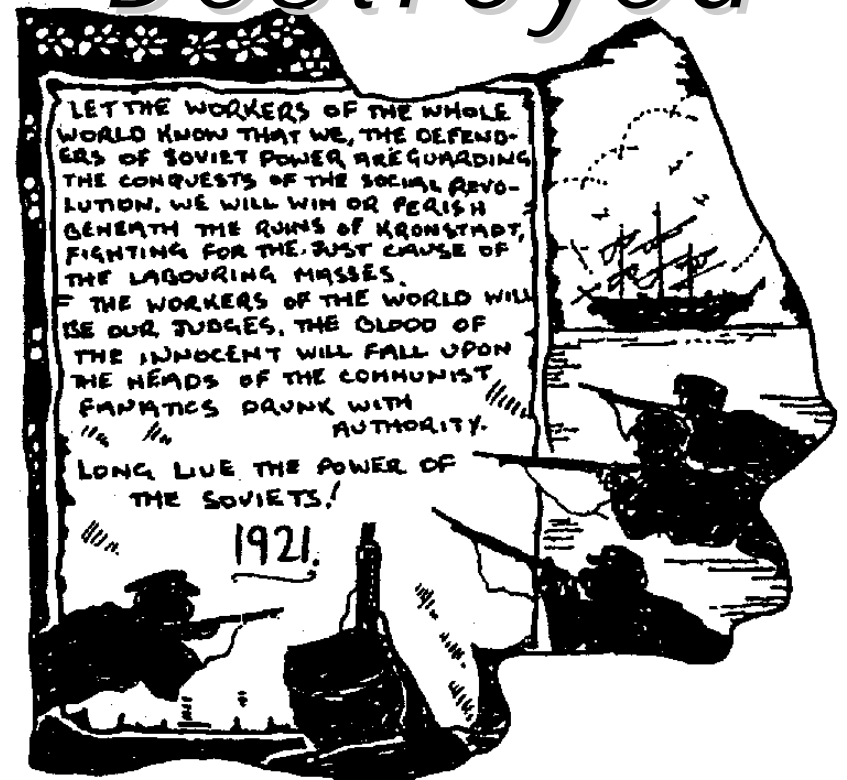 Destroyed
LET THE WORKERS OF THE WHOLE
WORLD KNOW THAT WE, THE DEFEND-
ERS OF SOVIET POWER ARE GUARDING
THE CONQUESTS OF THE SOCIAL REVO-
LUTION. WE WILL WIN OR PERISH
BENEATH THE RUINS OF KRONSTADT,
FIGHTING FOR THE JUST CAUSE OF
THE LABOURING MASSES.
THE WORKERS OF THE WORLD WILL
BE OUR JUDGES. THE BLOOD OF
THE INNOCENT WILL FALL UPON
THE HEADS OF THE COMMUNIST
FANATICS DRUNK WITH
AUTHORITY.
LONG LIVE THE POWER OF
THE SOVIETS!
1921.